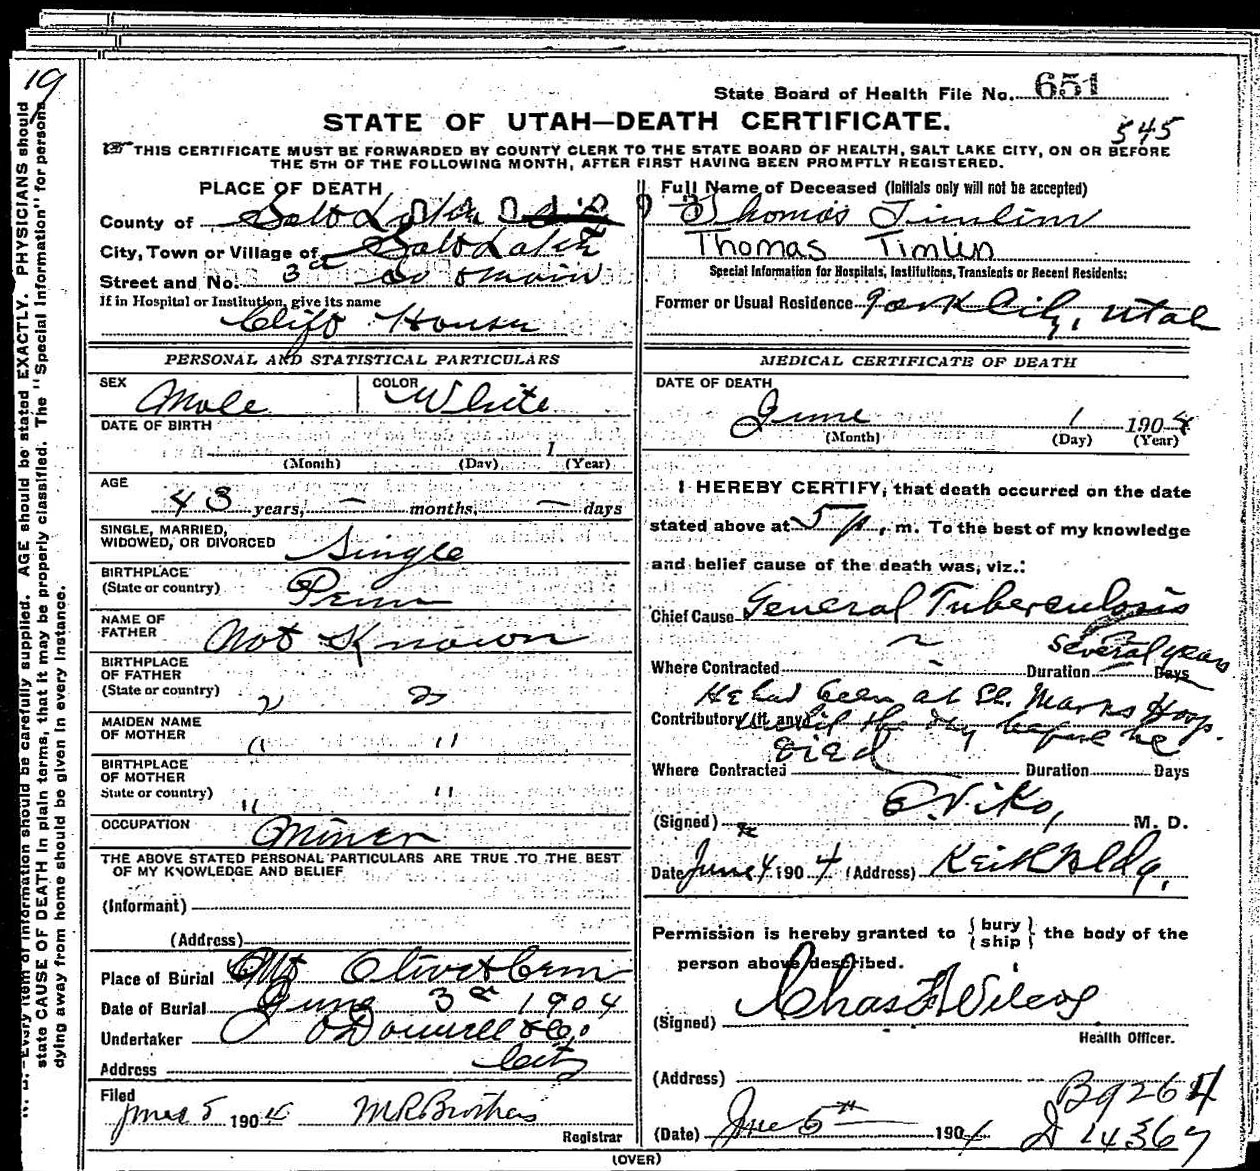 19
State Board of Health File No. 651
STATE OF UTAH—DEATH CERTIFICATE.
545
THIS CERTIFICATE MUST BE FORWARDED BY COUNTY CLERK TO THE STATE BOARD OF HEALTH, SALT LAKE CITY, ON OR BEFORE
THE 5TH OF THE FOLLOWING MONTH, AFTER FIRST HAVING BEEN PROMPTLY REGISTERED.
PLACE OF DEATH
County of Salt Lake
City, Town or Village of Salt Lake
Street and No. 3d So & Main
If in Hospital or Institution, give its name
Clift House
Full Name of Deceased (Initials only will not be accepted)
Thomas Timlin
Thomas Timlin
Special Information for Hospitals, Institutions, Transients or Recent Residents:
Former or Usual Residence Park City, Utah
PERSONAL AND STATISTICAL PARTICULARS
SEX Male
COLOR White
DATE OF BIRTH
1
(Month) (Day) (Year)
AGE
43 years, — months, — days
SINGLE, MARRIED,
WIDOWED, OR DIVORCED Single
BIRTHPLACE
(State or country) Penn
NAME OF
FATHER Not Known
BIRTHPLACE
OF FATHER
(State or country) " "
MAIDEN NAME
OF MOTHER " "
BIRTHPLACE
OF MOTHER
State or country) " "
OCCUPATION Miner
THE ABOVE STATED PERSONAL PARTICULARS ARE TRUE TO THE BEST
OF MY KNOWLEDGE AND BELIEF
(Informant)
(Address)
Place of Burial Mt Olivet Cem
Date of Burial June 3d 1904
Undertaker O'Donnell & Co
Address City
Filed
June 5 1904 M R Brothers
Registrar
MEDICAL CERTIFICATE OF DEATH
DATE OF DEATH
June 1 1904
(Month) (Day) (Year)
I HEREBY CERTIFY, that death occurred on the date
stated above at 5 p. m. To the best of my knowledge
and belief cause of the death was, viz.:
Chief Cause General Tuberculosis
Several years
Where Contracted Duration Days
He had been at St. Marks Hosp.
Contributory (if any) until the day before he
died
Where Contracted Duration Days
(Signed) E. Viko, M. D.
Date June 4 1904 (Address) Keith Bldg.
Permission is hereby granted to {bury
ship} the body of the
person above described.
(Signed) Chas F Wilcox
Health Officer.
(Address)
B9264
(Date) June 5th 1904 D 14367
(OVER)
N. B.—Every item of information should be carefully supplied. AGE should be stated EXACTLY. PHYSICIANS should
state CAUSE OF DEATH in plain terms, that it may be properly classified. The "Special Information" for persons
dying away from home should be given in every instance.